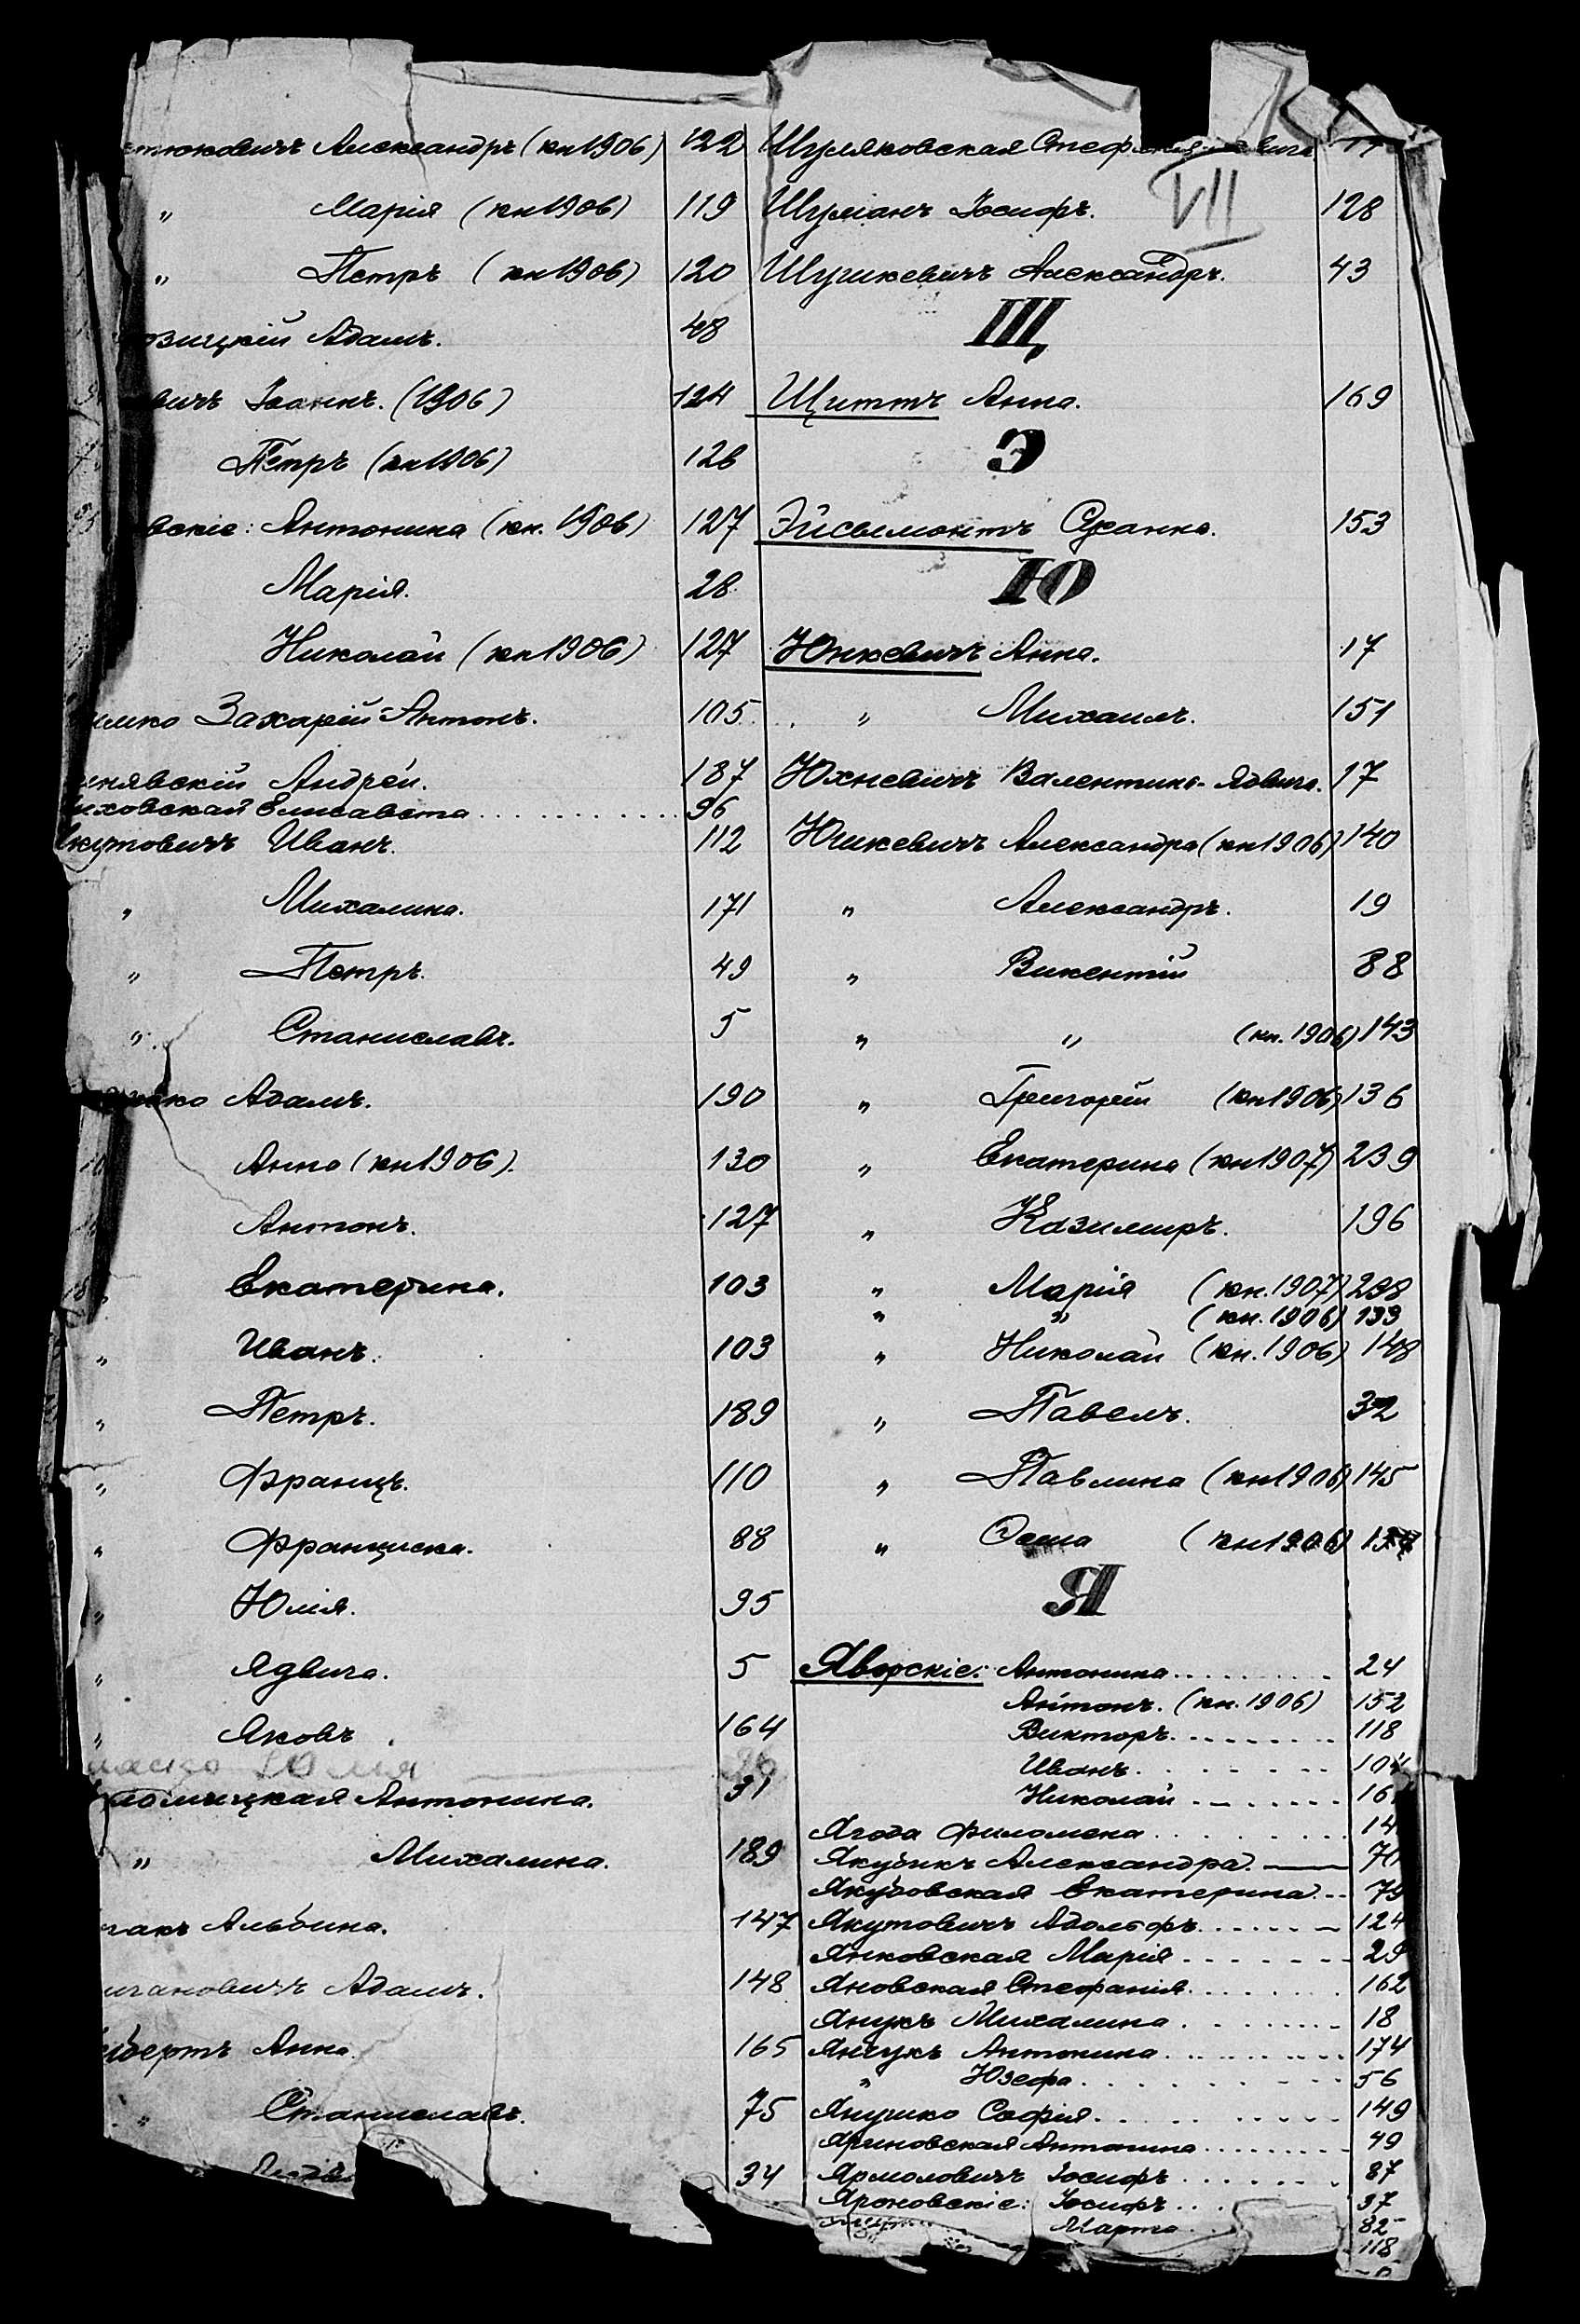 тюковичъ Александръ (кн 1906) 122
" Марія (кн 1906) 119
" Петръ (кн 1906) 120
озицкій Адамъ. 48
вичъ Іоаннъ. (1906) 124
Петръ (кн 1906) 126
вскіе: Антонина (кн. 1906) 127
Марія. 28
Николай (кн 1906) 127
Захарій-Антонъ. 105
нявскій Андрей. 187
иховская Елисавета 96
кутовичъ Иванъ. 112
" Михалина. 171
" Петръ. 49
" Станиславъ. 5
Адамъ. 190
Анна (кн 1906). 130
Антонъ. 127
Екатерина. 103
" Иванъ. 103
" Петръ. 189
" Францъ. 110
" Франциска. 88
" Юлія. 95
" Ядвига. 5
" Яковъ 164
Юлія
Антонина. 31
" Михалина. 189
Альбина. 147
Адамъ. 148
бертъ Анна. 165
" Станиславъ. 75
34
Шуляковская
VII
Шуманъ Іосифъ. 128
Шушкевичъ Александръ. 43
Щ
Щиттъ Анна. 169
Э
Эйсымонтъ Жанна. 153
Ю
Юнкевичъ Анна. 17
" Михаилъ. 151
Юхневичъ Валентина-Ядвига. 17
Юшкевичъ Александра (кн 1906) 140
" Александръ. 19
" Викентій 88
" " (кн. 1906) 143
" Григорій (кн 1906) 136
" Екатерина (кн 1907) 239
" Казимиръ. 196
" Марія (кн. 1907) 238
" " (кн. 1906) 133
" Николай (кн. 1906) 148
" Павелъ. 32
" Павлина (кн 1906) 145
" (кн 1906)
Я
Яворскіе: Антонина 24
Антонъ. (кн. 1906) 152
Викторъ 118
Иванъ 104
Николай 16
Ягода Филомена 14
Якубикъ Александра 70
Якубовская Екатерина 79
Якутовичъ Адольфъ 124
Янковская Марія 29
Яновская Стефанія 162
Янукъ Михалина 18
Янчукъ Антонина 174
" Юзефа 56
Янушко Софія 149
Яриновская Антонина 49
Ярмоловичъ Іосифъ 87
Яроновскіе: Іосифъ 37
Марта 82
118